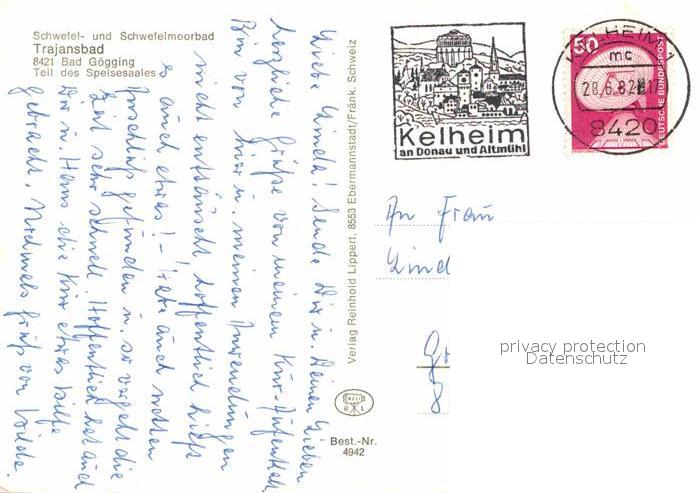 Schwefel- und Schwefelmoorbad
Trajansbad
8421 Bad Gögging
Teil des Speisesaales
Liebe Linda! Sende Dir u. Deinen Lieben
herzliche Grüße von meinem Kur-Aufenthalt.
Bin von hier u. meinen Anwendungen
nicht enttäuscht hoffentlich hilft
es auch etwas! - Habe auch netten
Anschluß gefunden u. so vergeht die
Zeit sehr schnell. Hoffentlich hat auch
Dir u. Hans die Kur etwas Hilfe
gebracht. Nochmals Grüße von Hilde.
Verlag Reinhold Lippert, 8553 Ebermannstadt/Fränk. Schweiz
R L
Best.-Nr.
4942
Kelheim
an Donau und Altmühl
50
DEUTSCHE BUNDESPOST
KELHEIM 1
mc
28.6.82-17
8420
An Frau
Lind
privacy protection
Datenschutz